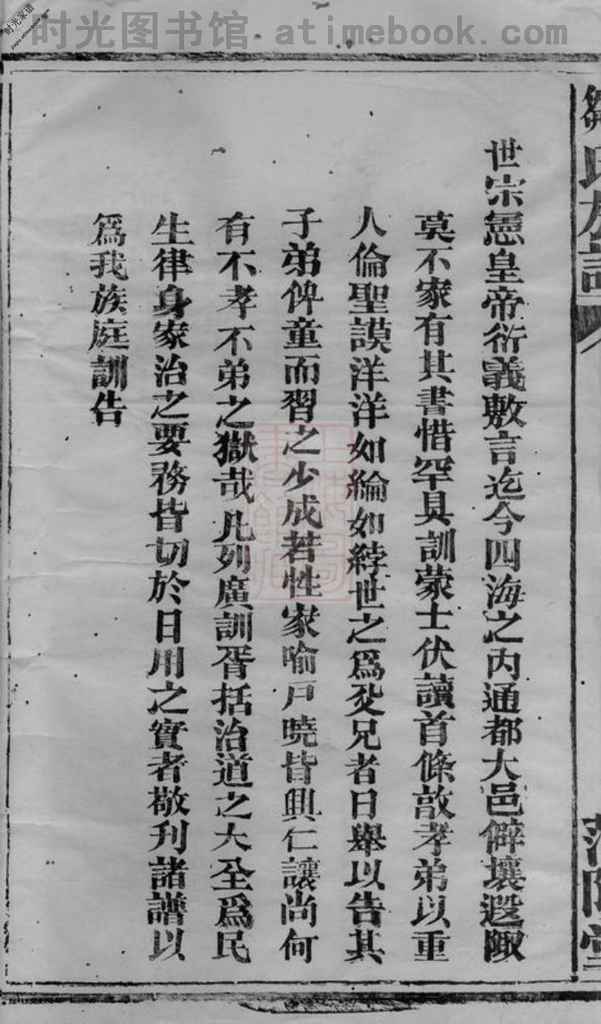 时光图书馆 - atimebook.com
时光家谱
鄒氏族譜
世宗憲皇帝衍義敷言迄今四海之內通都大邑僻壤遐陬
莫不家有其書惜罕具訓蒙士伏讀首條敦孝弟以重
人倫聖謨洋洋如綸如綍世之為父兄者日舉以告其
子弟俾童而習之少成若性家喻戶曉皆興仁讓尚何
有不孝不弟之獄哉凡列廣訓胥括治道之大全為民
生律身家治之要務皆切於日用之實者敬刊諸譜以
為我族庭訓告